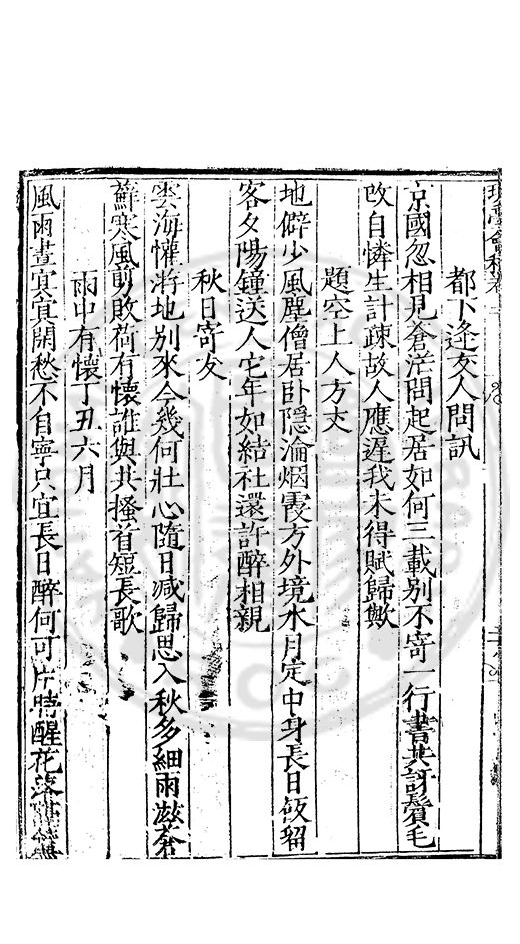 都下逢友人問訊
京國忽相見蒼茫問起居如何三載別不寄一行書共訝鬢毛
改自憐生計疎故人應遲我未得賦歸歟
題空上人方丈
地僻少風塵僧居卧隱淪烟霞方外境水月定中身長日飯留
客夕陽鐘送人它年如結社還許醉相親
秋日寄友
雲海懽游地別來今幾何壯心隨日减歸思入秋多細雨滋蒼
蘚寒風剪敗荷有懷誰與共搔首短長歌
雨中有懷丁丑六月
風雨晝冥冥閑愁不自寧只宜長日醉何可片時醒花落